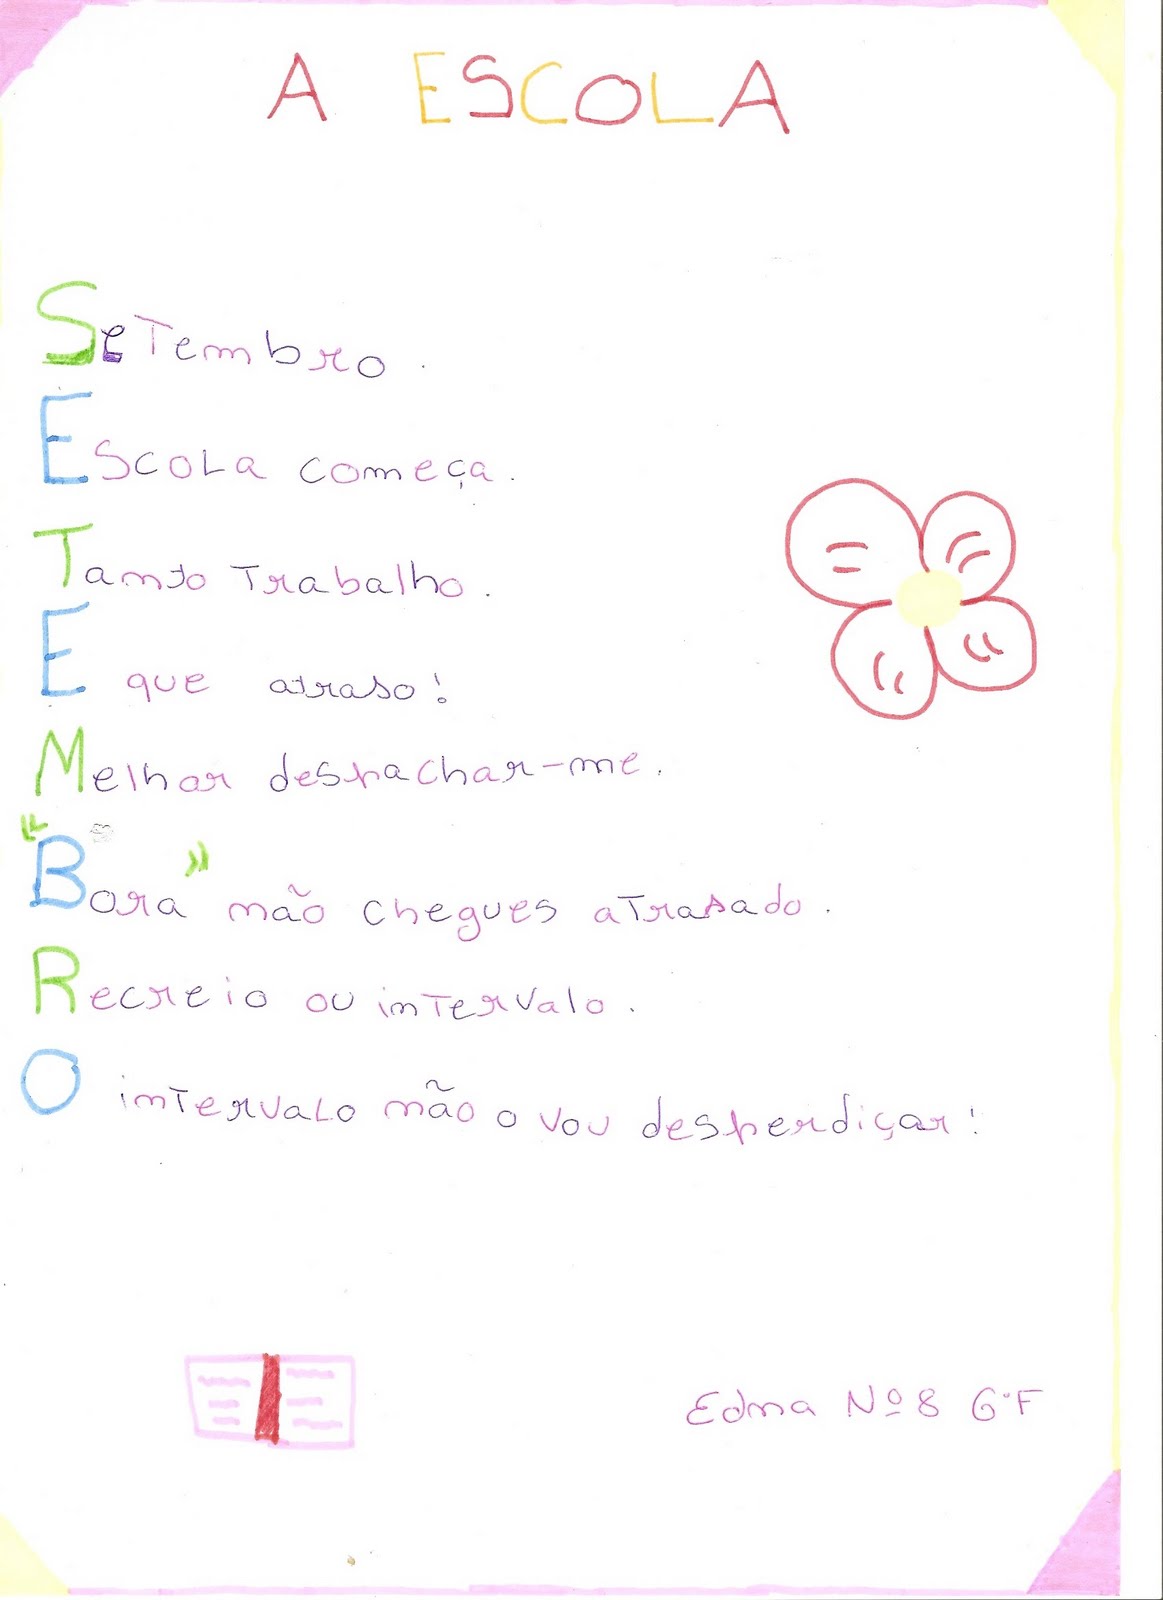 A ESCOLA
Setembro.
Escola começa.
Tanto Trabalho.
E que atraso!
Melhor despachar-me.
"Bora" não chegues atrasado.
Recreio ou intervalo.
O intervalo não o vou desperdiçar!
Edna Nº8 6ºF